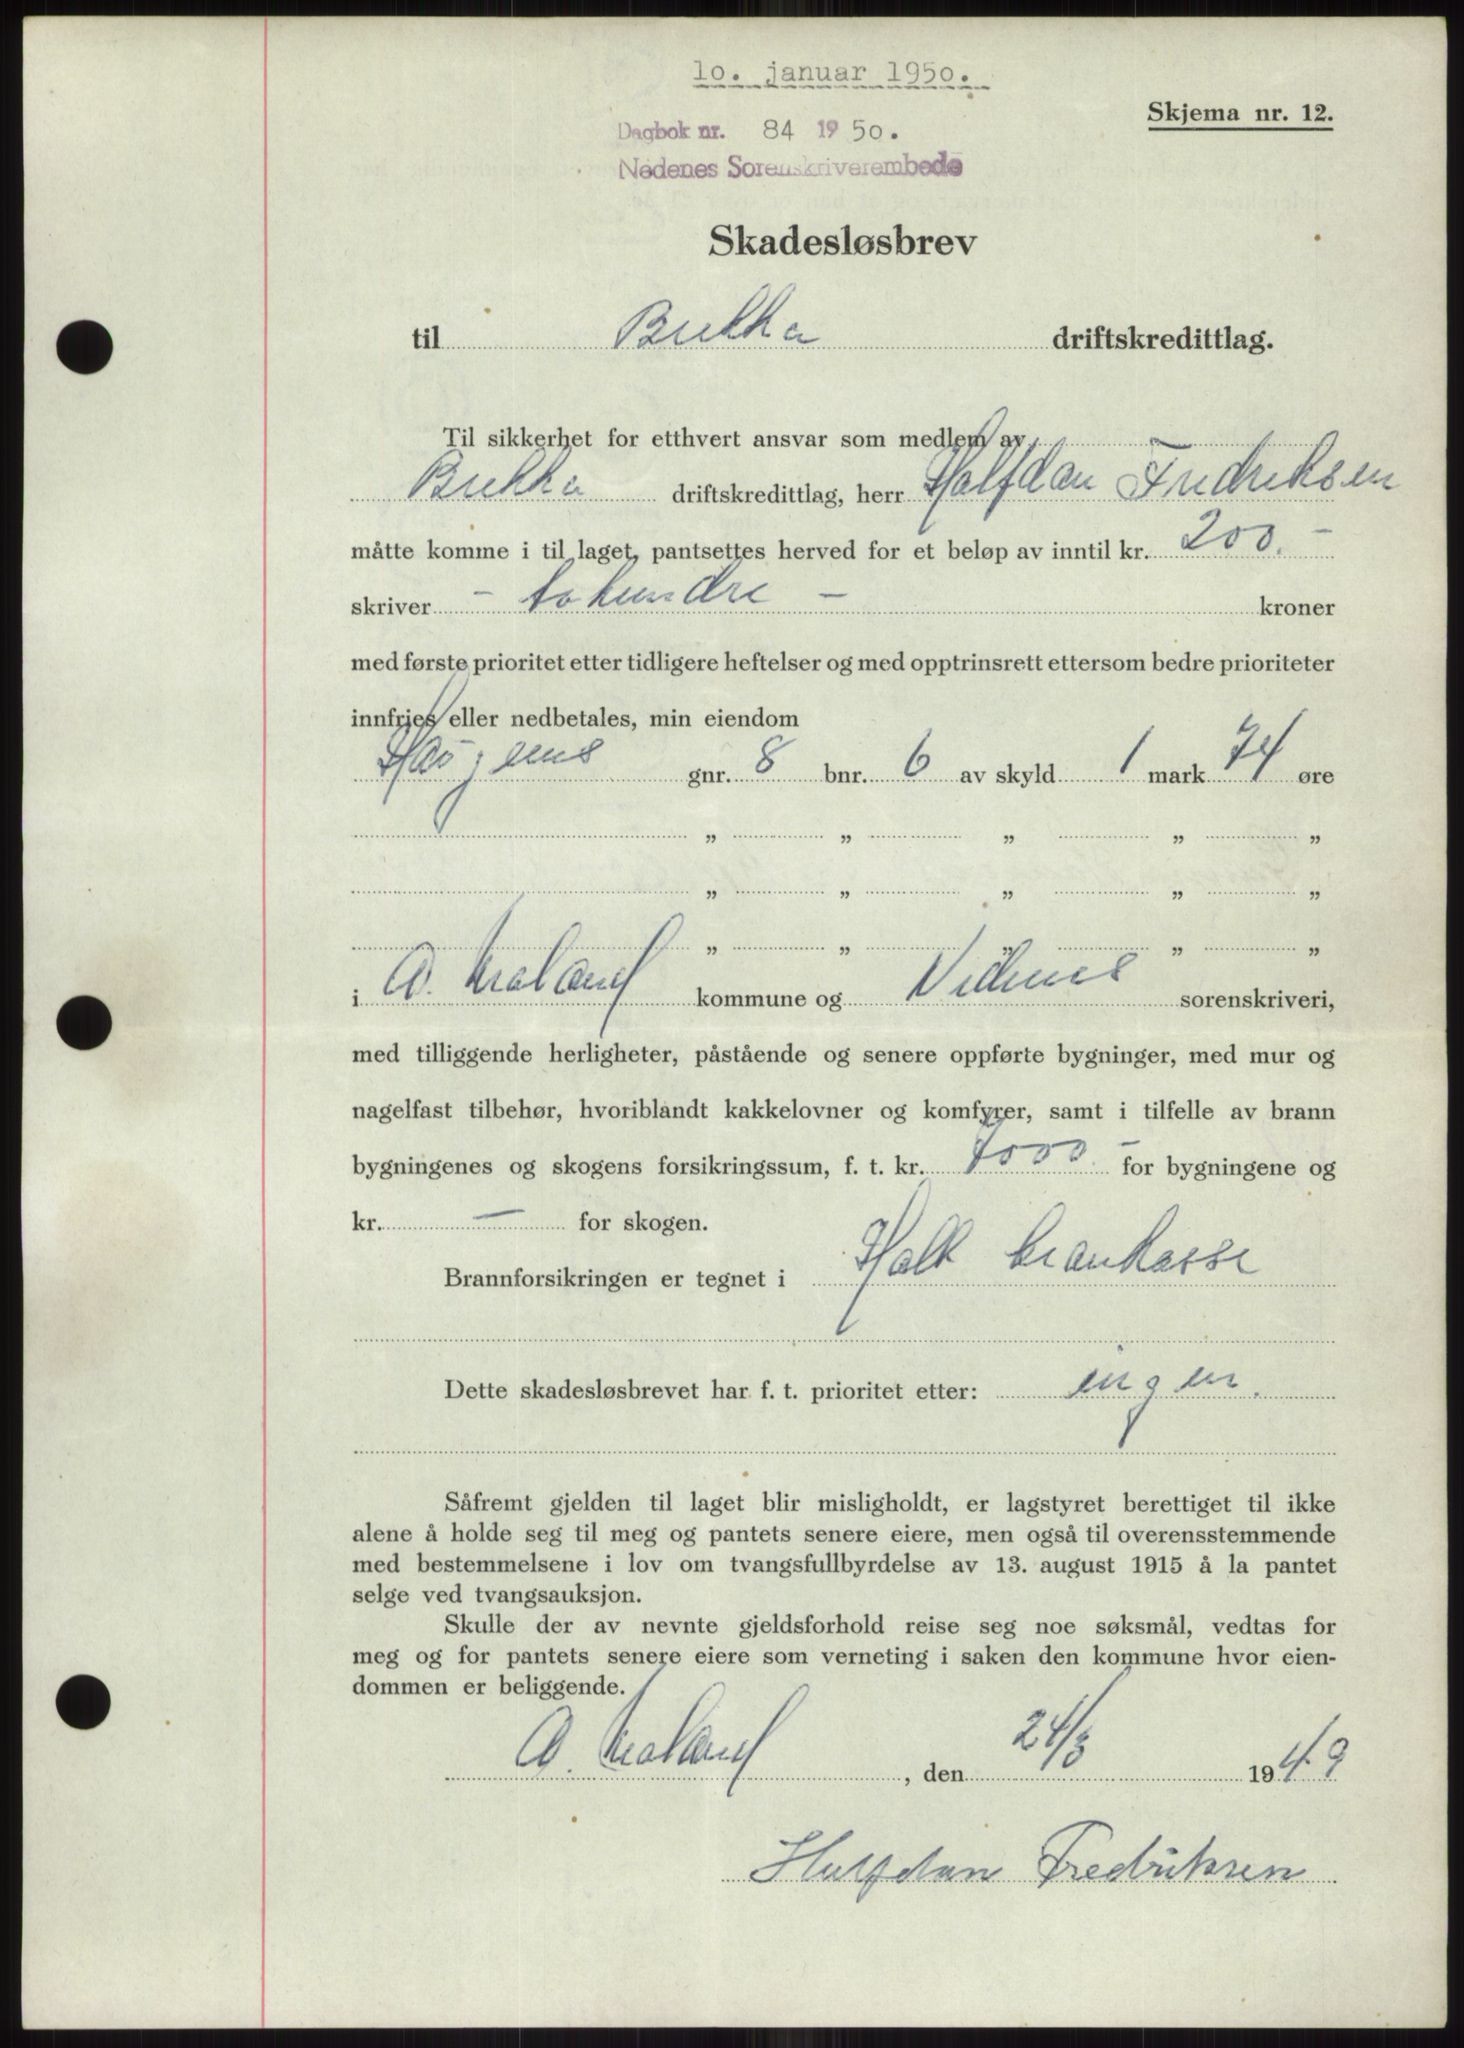 10. januar 1950.
Skjema nr. 12.
Dagbok nr. 84 1950.
Nedenes Sorenskriverembede
Skadesløsbrev
til Brekka driftskredittlag.
Til sikkerhet for etthvert ansvar som medlem av
Brekka driftskredittlag, herr Halfdan Fredriksen
måtte komme i til laget, pantsettes herved for et beløp av inntil kr. 200.–
skriver – tohundre – kroner
med første prioritet etter tidligere heftelser og med opptrinsrett ettersom bedre prioriteter
innfries eller nedbetales, min eiendom
gnr. 8 bnr. 6 av skyld 1 mark 74 øre
„ „ „ „ „
„ „ „ „ „
„ „ „ „ „
i Ø. Moland kommune og Nedenes sorenskriveri,
med tilliggende herligheter, påstående og senere oppførte bygninger, med mur og
nagelfast tilbehør, hvoriblandt kakkelovner og komfyrer, samt i tilfelle av brann
bygningenes og skogens forsikringssum, f. t. kr. 7000.– for bygningene og
kr. – for skogen.
Brannforsikringen er tegnet i
Dette skadesløsbrevet har f. t. prioritet etter: ingen.
Såfremt gjelden til laget blir misligholdt, er lagstyret berettiget til ikke
alene å holde seg til meg og pantets senere eiere, men også til overensstemmende
med bestemmelsene i lov om tvangsfullbyrdelse av 13. august 1915 å la pantet
selge ved tvangsauksjon.
Skulle der av nevnte gjeldsforhold reise seg noe søksmål, vedtas for
meg og for pantets senere eiere som verneting i saken den kommune hvor eien-
dommen er beliggende.
Ø. Moland, den 24/3 1949
Halfdan Fredriksen